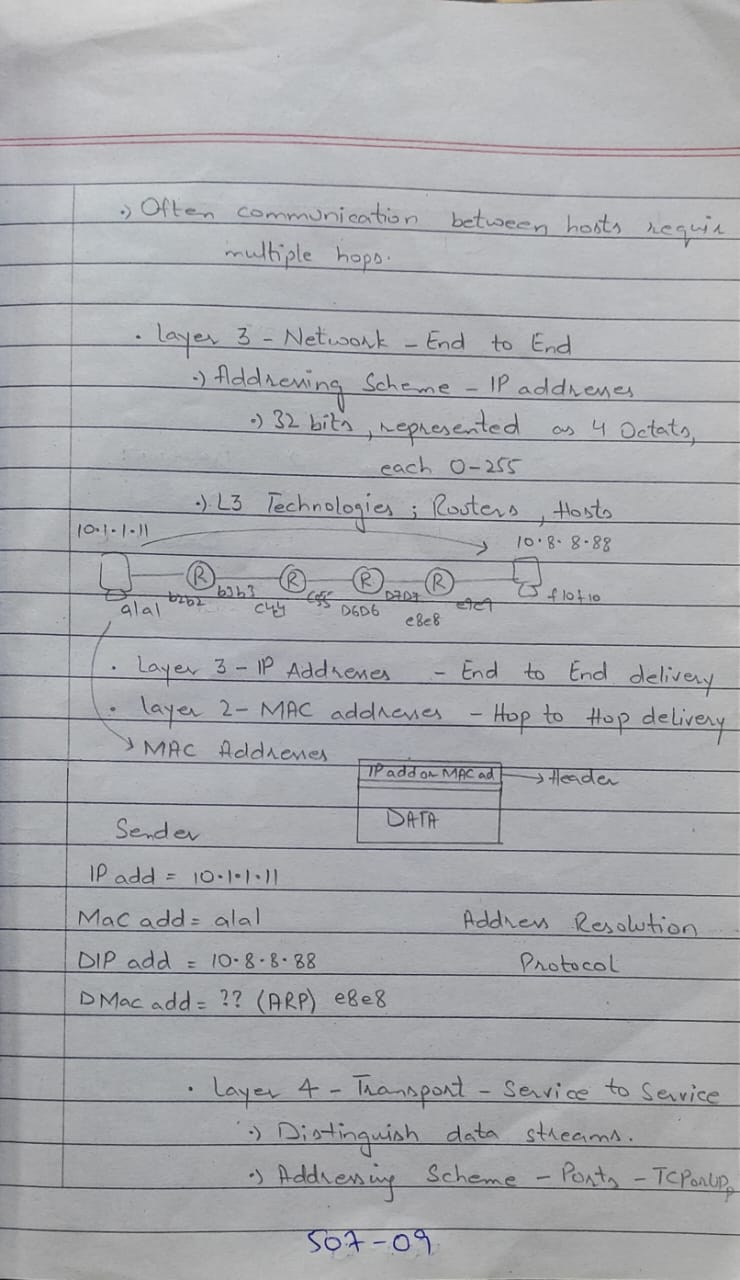 ·) Often communication between hosts requir
multiple hops.
· Layer 3 - Network - End to End
·) Addressing Scheme - IP addresses
·) 32 bits, represented as 4 Octats,
each 0-255
·) L3 Technologies ; Routers, Hosts
10.1.1.11
10.8.8.88
R R R R
a1a1 b2b2 b3b3 c4c4 c5c5 D6D6 D7D7 e8e8 e9e9 f10f10
· Layer 3 - IP Addresses - End to End delivery
· layer 2 - MAC addresses - Hop to Hop delivery
MAC Addresses
IP add or MAC ad → Header
DATA
Sender
IP add = 10.1.1.11
Mac add = a1a1 Address Resolution
DIP add = 10.8.8.88 Protocol
DMac add = ?? (ARP) e8e8
· Layer 4 - Transport - Service to Service
·) Distinguish data streams.
·) Addressing Scheme - Ports - TCP or UDP
S07-09